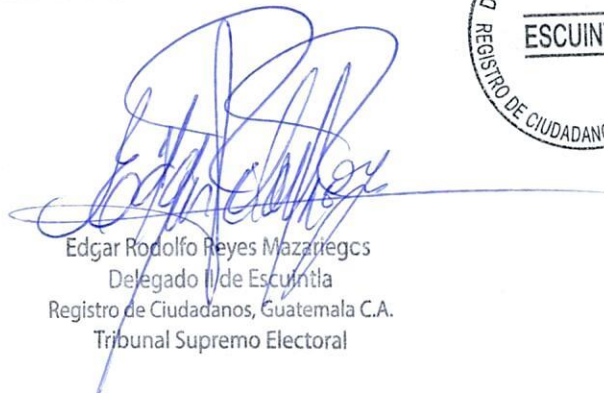 ESCUIN
REGISTRO DE CIUDADAN
Edgar Rodolfo Reyes Mazariegos
Delegado II de Escuintla
Registro de Ciudadanos, Guatemala C.A.
Tribunal Supremo Electoral